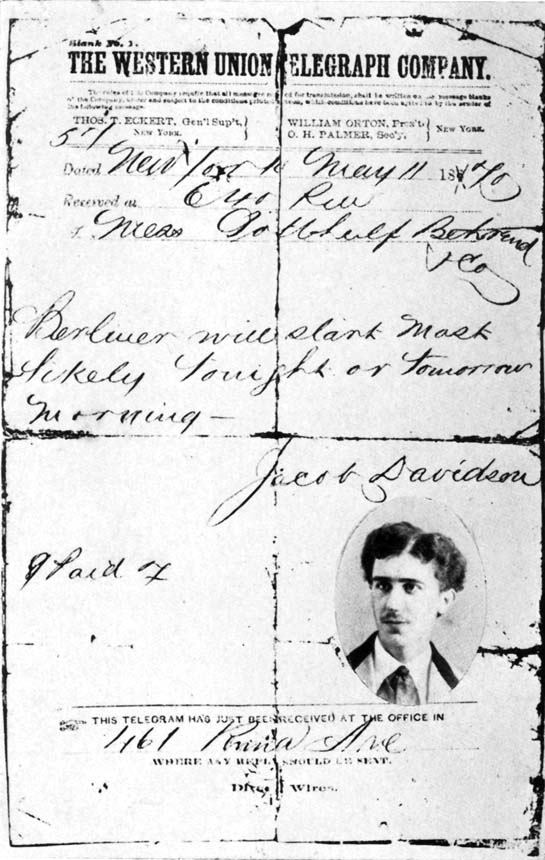 Blank No. 1.
THE WESTERN UNION TELEGRAPH COMPANY.
The rules of this Company require that all messages received for transmission, shall be written on the message blanks
of the Company, under and subject to the conditions printed thereon, which conditions have been agreed to by the sender of
the following message.
THOS. T. ECKERT, Gen'l Sup't, WILLIAM ORTON, Pres't
NEW YORK. O. H. PALMER, Sec'y. NEW YORK.
Dated New York May 11 1870
Received at
To Mess Gotthelf Behrend
& Co
Berliner will start most
likely tonight or tomorrow
morning —
Jacob Davidson
9 Paid
THIS TELEGRAM HAS JUST BEEN RECEIVED AT THE OFFICE IN
461 Penna Ave
WHERE ANY REPLY SHOULD BE SENT.
Direct Wires.